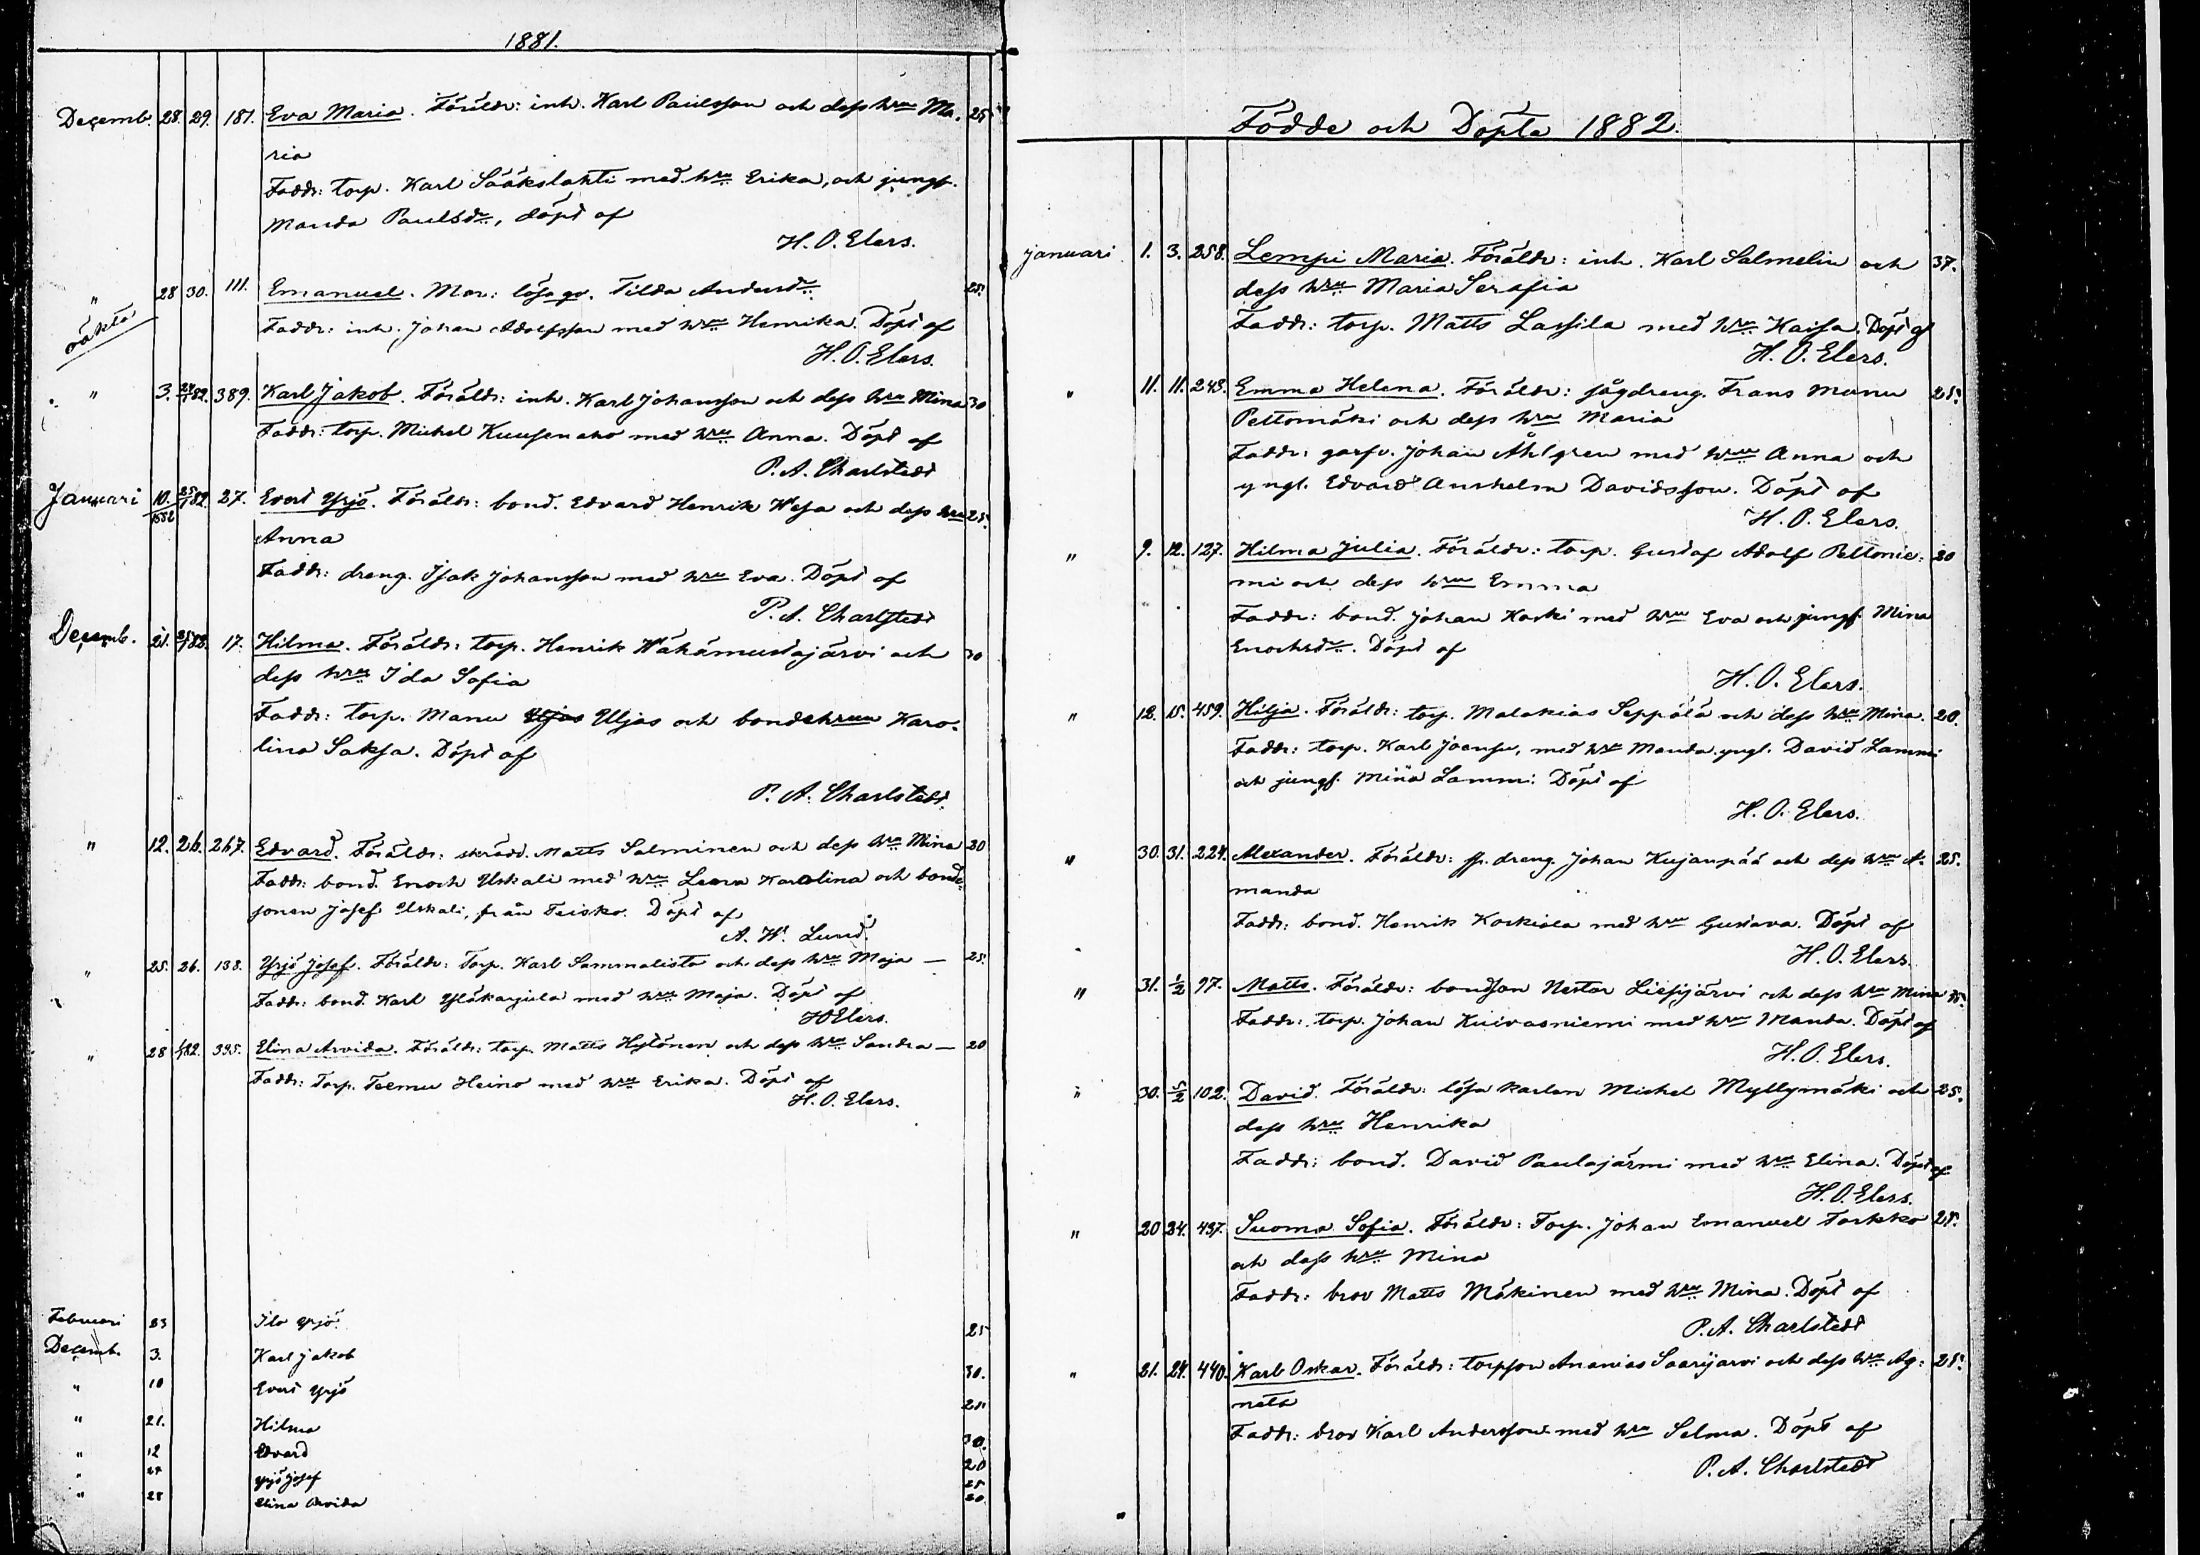 1881.
Decemb. 28. 29. 181. Eva Maria. Föräldr: inh. Karl Paulsson och dess hru Ma- 25
ria
Faddr: torp. Karl Sääkslahti med hru Erika, och jungf.
Manda Paulsdr, döpt af
H. O. Elers.
" 28 30. 111. Emanuel. Mor: lösa qv. Tilda Andersdr 25.
oäkta Faddr: inh. Johan Adolfsson med hru Henrika. Döpt af
H. O. Elers.
" 3. 24/1 82. 389. Karl Jakob. Föräldr: inh. Karl Johansson och dess hru Mina 30
Faddr: torp. Michel Kuusenaho med hru Anna. Döpt af
P. A. Charlstedt
Januari 10. 1882 25/1 82. 27. Evert Yrjö. Föräldr: bond. Edvard Henrik Wesa och dess hru 25.
Anna
Faddr: dreng. Isak Johansson med hru Eva. Döpt af
P. A. Charlstedt
Decemb. 21. 82. 17. Hilma. Föräldr: torp. Henrik Wähämustajärvi och 30
dess hru Ida Sofia
Faddr: torp. Manu Uljas och bondehrun Karo-
lina Saksa. Döpt af
P. A. Charlstedt.
" 12. 26. 267. Edvard. Föräldr: skrädd. Matts Salminen och dess hru Mina 20
Faddr: bond. Enoch Uskali med hru Leena Karolina och bonde-
sonen Josef Uskali, från Teisko. Döpt af
A. W. Lund.
" 25. 26. 138. Yrjö Josef. Föräldr: Torp. Karl Sammalisto och dess hru Maja — 25.
Faddr: bond. Karl Yläkarjula med hru Maja. Döpt af
HOElers.
" 28 1/1 82. 395. Elina Arvida. Föräldr: torp. Matts Hytönen och dess hru Sandra — 20
Faddr: Torp. Teemu Heino med hru Erika. Döpt af
H. O. Elers.
Februari 23 Ilo Yrjö. 25
Decemb. 3. Karl Jakob 30.
" 10 Evert Yrjö 25
" 21. Hilma 30.
" 12 Edvard 20
" 25 Yrjö Josef 25
" 28 Elina Arvida 20
Födde och Döpte 1882.
Januari 1. 3. 258. Lempi Maria. Föräldr: inh. Karl Salmelin och 37.
dess hru Maria Serafia
Faddr: torp. Matts Lassila med hru Kaisa. Döpt af
H. O. Elers.
" 11. 11. 243. Emma Helena. Föräldr: sågdreng. Frans Manu 25.
Peltomäki och dess hru Maria
Faddr: garfv. Johan Åhlgren med hru Anna och
yngl. Edvard Anshelm Davidsson. Döpt af
H. O. Elers.
" 9. 12. 127. Hilma Julia. Föräldr: torp. Gustaf Adolf Peltonie- 20
mi och dess hru Emma
Faddr: bond. Johan Koski med hru Eva och jungf. Mina
Enochsdr. Döpt af
H. O. Elers.
" 12. 15. 459. Hilja. Föräldr: torp. Malakias Seppälä och dess hru Mina. 20.
Faddr: torp. Karl Joensu, med hru Manda, yngl. David Lammi
och jungf. Mina Lammi. Döpt af
H. O. Elers.
" 30. 31. 224. Alexander. Föräldr: dreng. Johan Kujanpää och dess hru A- 25.
manda
Faddr: bond. Henrik Koskiola med hru Gustava. Döpt af
H. O. Elers.
" 31. 1/2 97. Matts. Föräldr: bondson Nestor Liesijärvi och dess hru Mina
Faddr: torp. Johan Kuivasniemi med hru Manda. Döpt af
H. O. Elers.
" 30. 5/2 102. David. Föräldr: lösa karlen Michel Myllymäki och 25.
dess hru Henrika
Faddr: bond. David Paulajärvi med hru Elina. Döpt af
H. O. Elers.
" 20 24. 437. Suoma Sofia. Föräldr: Torp. Johan Emanuel Torkko 25.
och dess hru Mina
Faddr: bror Matts Mäkinen med hru Mina. Döpt af
P. A. Charlstedt
" 21. 24. 440. Karl Oskar. Föräldr: torpson Ananias Saarijarvi och dess hru Ag- 25.
neta
Faddr: Karl Andersson med hru Selma. Döpt af
P. A. Charlstedt